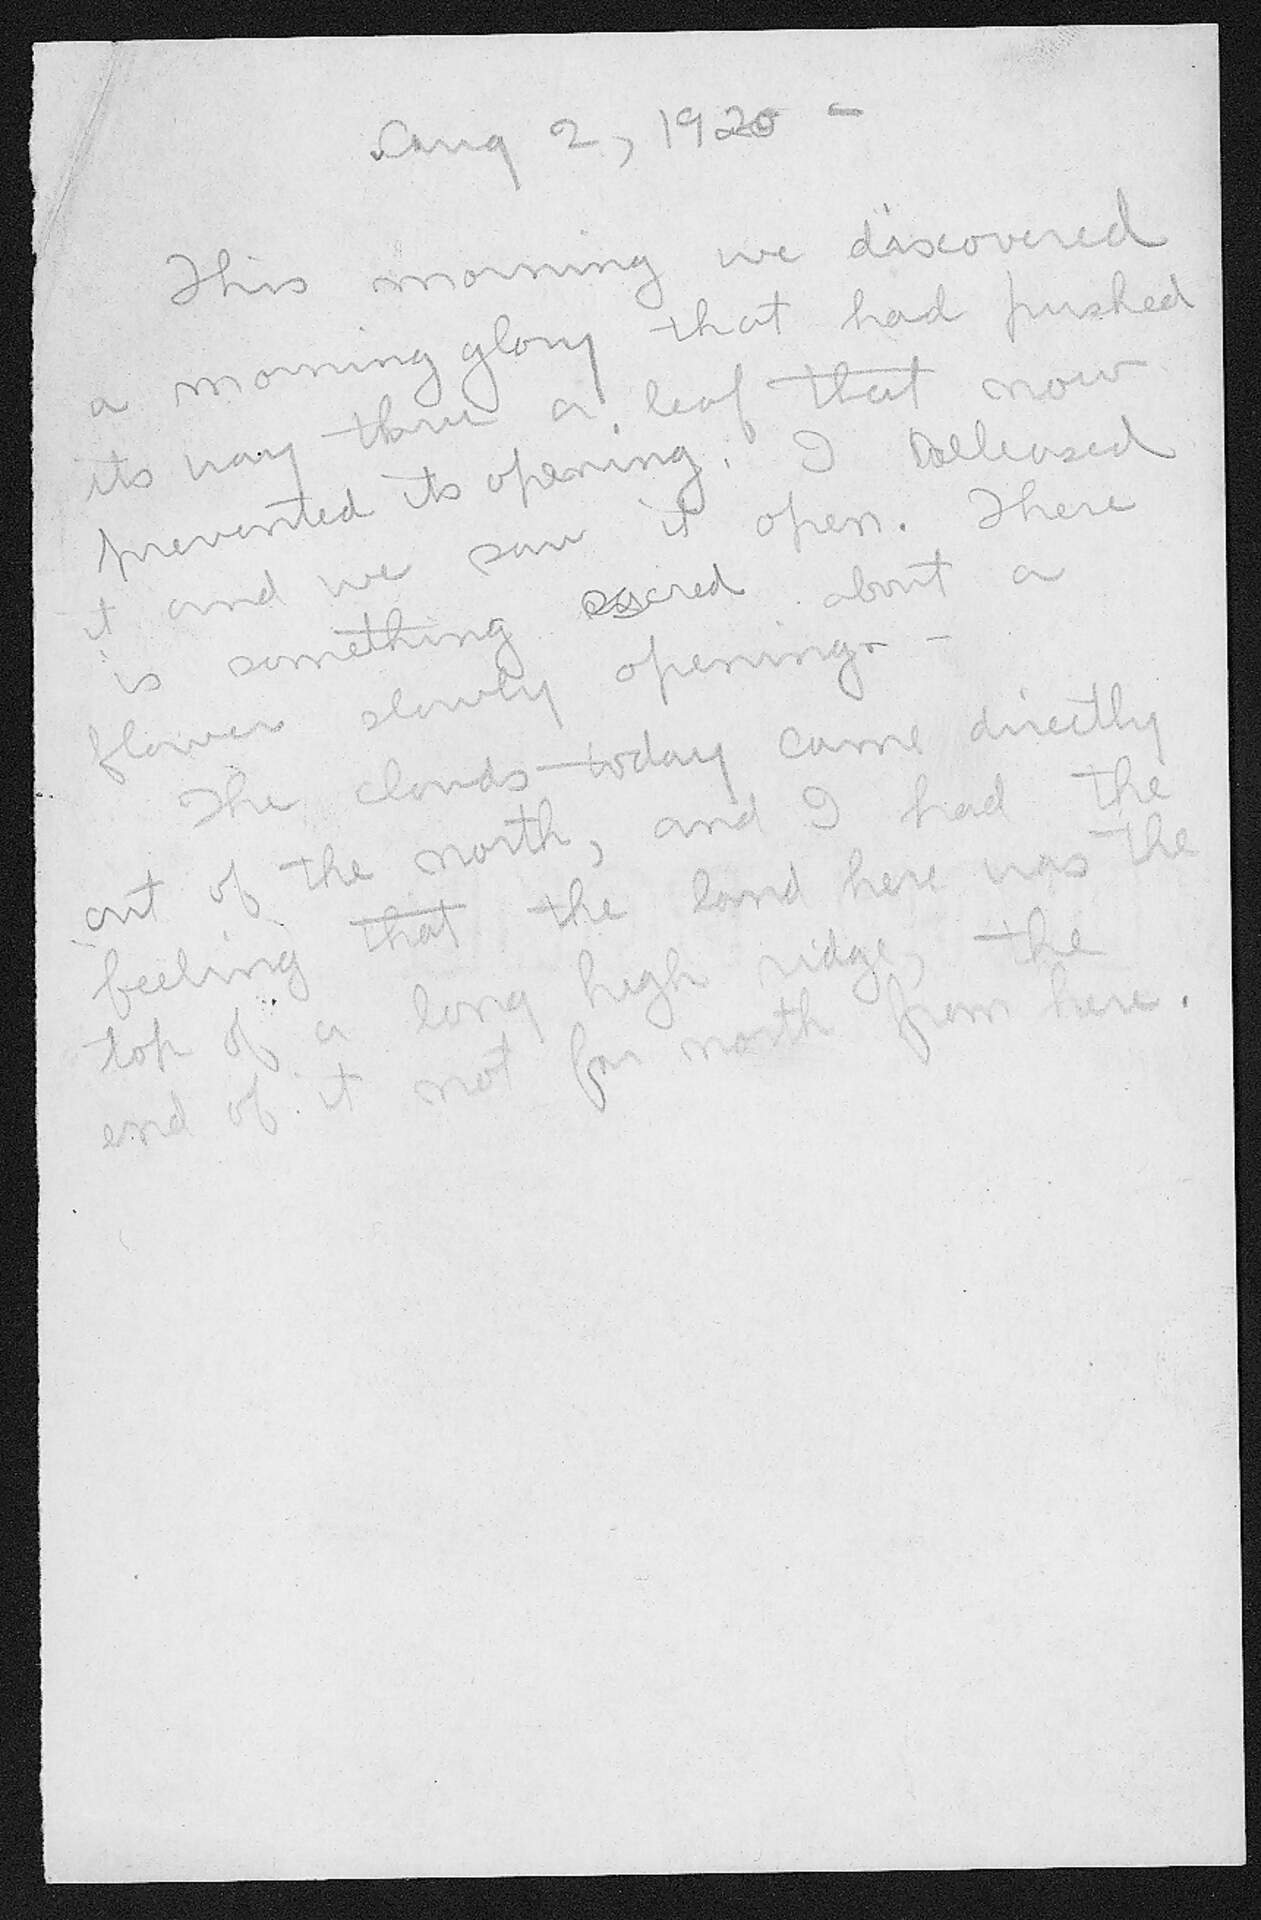 Aug 2, 1920 -
This morning we discovered
a morning glory that had pushed
its way thru a leaf that now
prevented its opening. I released
it and we saw it open. There
is something sacred about a
flower slowly opening. -
The clouds today came directly
out of the north, and I had the
feeling that the land here was the
top of a long high ridge, the
end of it not far north from here.